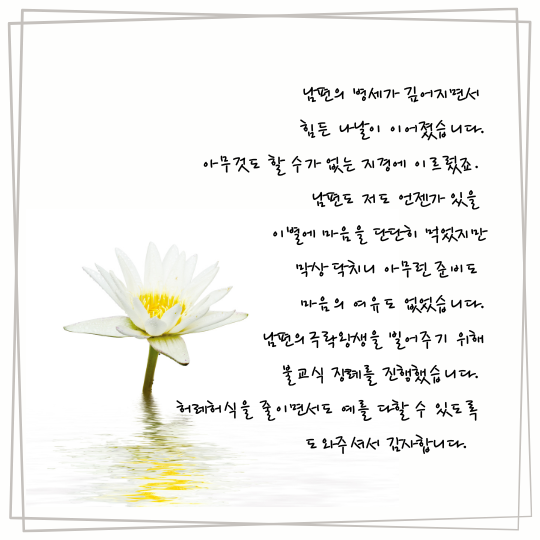 남편의 병세가 깊어지면서
힘든 나날이 이어졌습니다.
아무것도 할 수가 없는 지경에 이르렀죠.
남편도 저도 언젠가 있을
이별에 마음을 단단히 먹었지만
막상 닥치니 아무런 준비도
마음의 여유도 없었습니다.
남편의 극락왕생을 빌어주기 위해
불교식 장례를 진행했습니다.
허례허식을 줄이면서도 예를 다할 수 있도록
도와주셔서 감사합니다.